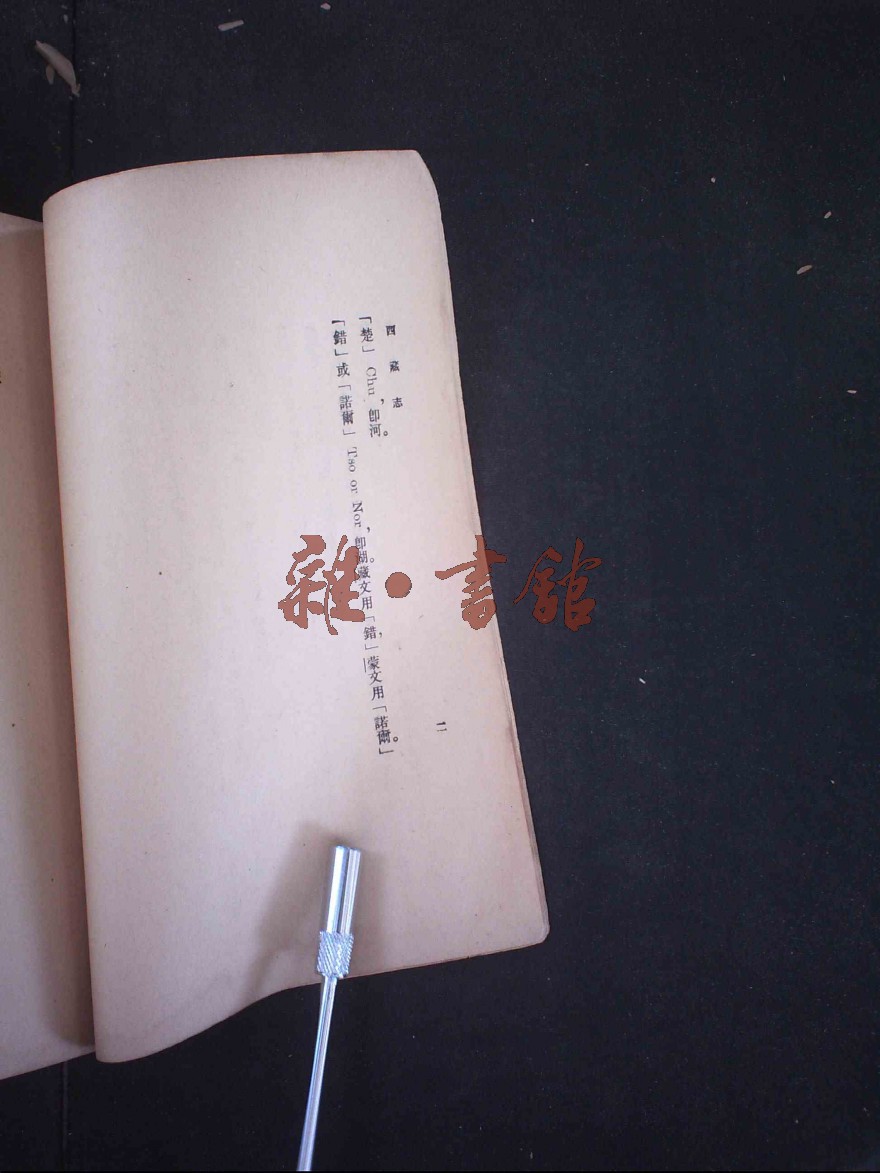 西藏志
二
「楚」Chu，卽河。
「錯」或「諾爾」Tso or Nor，卽湖。藏文用「錯，」蒙文用「諾爾。」
雜·書館